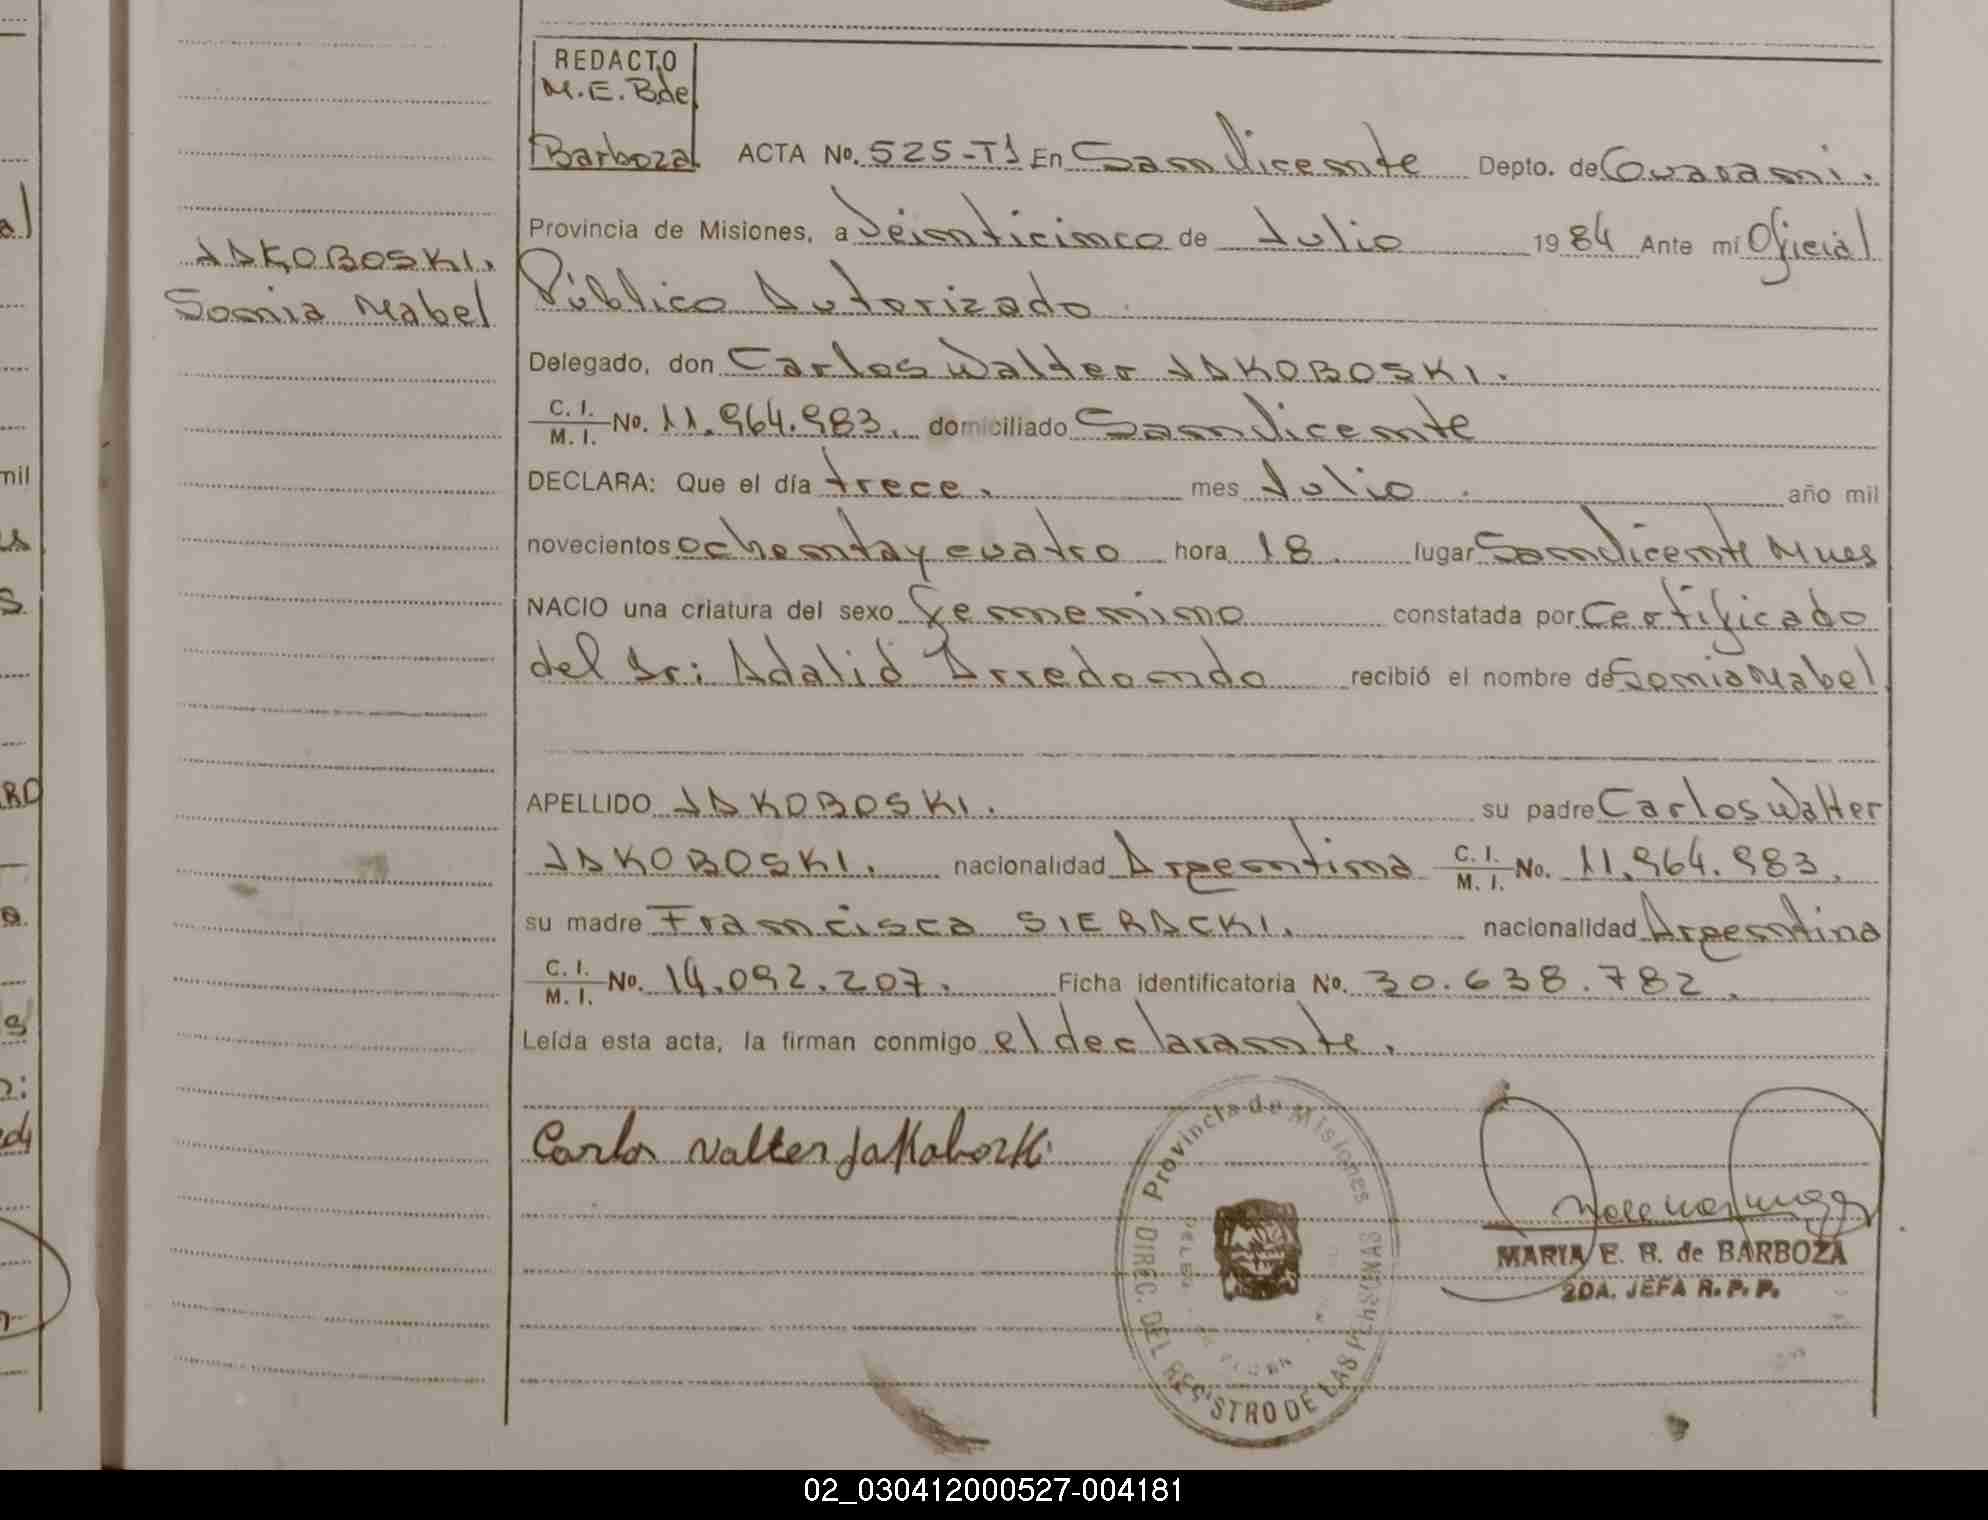 REDACTO
M.E.B de
Barboza
ACTA No. 525-T1 En San Vicente Depto. de Guarani.
Provincia de Misiones, a Veinticinco de Julio 1984 Ante mí Oficial
Público Autorizado
JAKOBOSKI.
Sonia Mabel
Delegado, don Carlos Walter JAKOBOSKI.
C. I. / M. I. No. 11.964.983. domiciliado San Vicente
DECLARA: Que el día trece. mes Julio. año mil
novecientos ochenta y cuatro hora 18. lugar San Vicente Mnes
NACIO una criatura del sexo femenino constatada por Certificado
del Dr: Adalid Arredondo recibió el nombre de Sonia Mabel
APELLIDO JAKOBOSKI. su padre Carlos Walter
JAKOBOSKI. nacionalidad Argentina C. I. / M. I. No. 11.964.983.
su madre Francisca SIERACKI. nacionalidad Argentina
C. I. / M. I. No. 14.092.207. Ficha identificatoria No. 30.638.782.
Leída esta acta, la firman conmigo el declarante.
Carlos Walter Jakoboski
Provincia de Misiones
DIREC. DEL REGISTRO DE LAS PERSONAS
MARIA E. B. de BARBOZA
2DA. JEFA R. P. P.
02_030412000527-004181